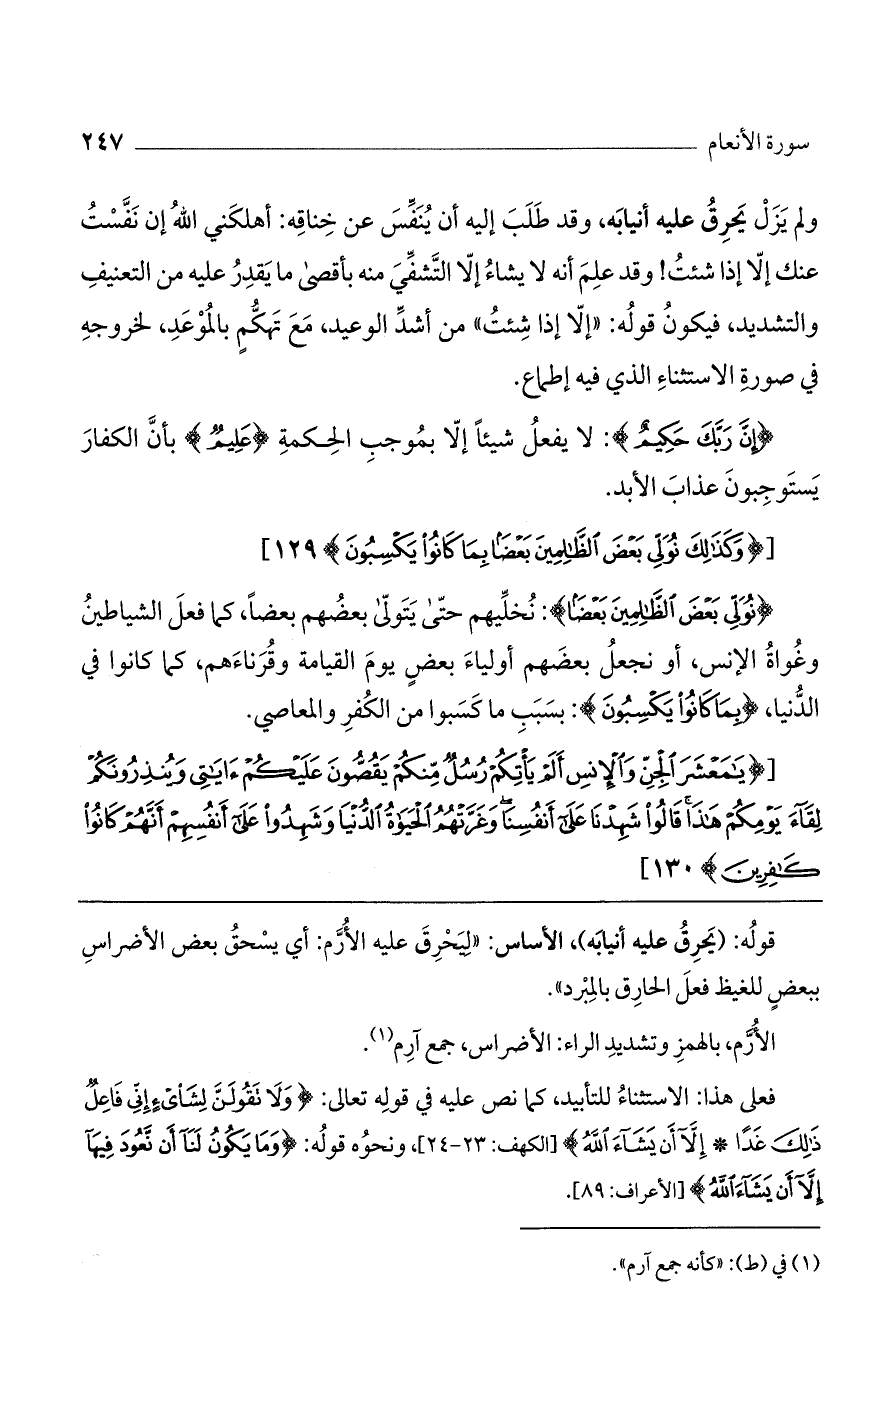 سورة الأنعام ٢٤٧
ولم يَزَلْ يَحرِقُ عليه أنيابَه، وقد طَلَبَ إليه أن يُنَفِّسَ عن خِناقِه: أهلكَني اللهُ إن نَفَّسْتُ
عنك إلّا إذا شئتُ! وقد علِمَ أنه لا يشاءُ إلّا التَّشفِّيَ منه بأقصىٰ ما يَقدِرُ عليه من التعنيفِ
والتشديد، فيكونُ قولُه: «إلّا إذا شِئتُ» من أشدِّ الوعيد، مَعَ تهكُّمٍ بالمُوْعَدِ، لخروجهِ
في صورةِ الاستثناءِ الذي فيه إطماع.
﴿إِنَّ رَبَّكَ حَكِيمٌ﴾: لا يفعلُ شيئاً إلّا بمُوجبِ الحِكمةِ ﴿عَلِيمٌ﴾ بأنَّ الكفارَ
يَستَوجِبونَ عذابَ الأبد.
[﴿وَكَذَٰلِكَ نُوَلِّي بَعْضَ ٱلظَّٰلِمِينَ بَعْضًۢا بِمَا كَانُوا۟ يَكْسِبُونَ﴾ ١٢٩]
﴿نُوَلِّي بَعْضَ ٱلظَّٰلِمِينَ بَعْضًۢا﴾: نُخلِّيهم حتّىٰ يَتَولّىٰ بعضُهم بعضاً، كما فعلَ الشياطينُ
وغُواةُ الإنس، أو نجعلُ بعضَهم أولياءَ بعضٍ يومَ القيامة وقُرَناءَهم، كما كانوا في
الدُّنيا، ﴿بِمَا كَانُوا۟ يَكْسِبُونَ﴾: بسَبَبِ ما كَسَبوا من الكُفرِ والمعاصي.
[﴿يَٰمَعْشَرَ ٱلْجِنِّ وَٱلْإِنسِ أَلَمْ يَأْتِكُمْ رُسُلٌ مِّنكُمْ يَقُصُّونَ عَلَيْكُمْ ءَايَٰتِي وَيُنذِرُونَكُمْ
لِقَآءَ يَوْمِكُمْ هَٰذَا ۚ قَالُوا۟ شَهِدْنَا عَلَىٰٓ أَنفُسِنَا ۖ وَغَرَّتْهُمُ ٱلْحَيَوٰةُ ٱلدُّنْيَا وَشَهِدُوا۟ عَلَىٰٓ أَنفُسِهِمْ أَنَّهُمْ كَانُوا۟
كَٰفِرِينَ﴾ ١٣٠]
قولُه: (يَحرِقُ عليه أنيابَه)، الأساس: «لِيَحْرِقَ عليه الأُرَّم: أي يسْحقُ بعض الأضراسِ
ببعضٍ للغيظ فعلَ الحارِق بالمِبْرد».
الأُرَّم، بالهمزِ وتشديدِ الراء: الأضراس، جمع آرِم(١).
فعلى هذا: الاستثناءُ للتأبيد، كما نص عليه في قولِه تعالى: ﴿وَلَا نَقُولَنَّ لِشَا۟ىْءٍ إِنِّي فَاعِلٌ
ذَٰلِكَ غَدًا * إِلَّآ أَن يَشَآءَ ٱللَّهُ﴾ [الكهف: ٢٣-٢٤]، ونحوُه قولُه: ﴿وَمَا يَكُونُ لَنَآ أَن نَّعُودَ فِيهَآ
إِلَّآ أَن يَشَآءَ ٱللَّهُ﴾ [الأعراف: ٨٩].
(١) في (ط): «كأنه جمع آرم».